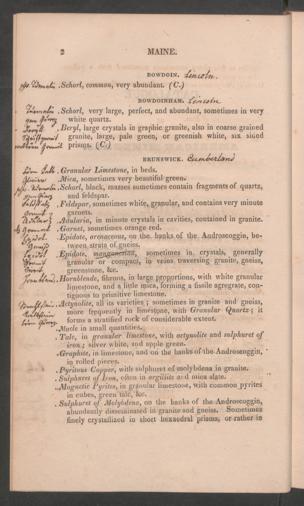 2
MAINE.
BOWDOIN. Lincoln.
. Schorl, common, very abundant. (C.)
BOWDOINHAM. Lincoln
. Schorl, very large, perfect, and abundant, sometimes in very
white quartz.
. Beryl, large crystals in graphic granite, also in coarse grained
granite, large, pale green, or greenish white, six sided
prisms. (C.)
BRUNSWICK. Cumberland
. Granular Limestone, in beds.
. Mica, sometimes very beautiful green.
. Schorl, black, masses sometimes contain fragments of quartz,
and feldspar.
. Feldspar, sometimes white, granular, and contains very minute
garnets.
. Adularia, in minute crystals in cavities, contained in granite.
. Garnet, sometimes orange red.
. Epidote, arenaceous, on the banks of the Androscoggin, be-
tween strata of gneiss.
. Epidote, manganesian, sometimes in crystals, generally
granular or compact, in veins traversing granite, gneiss,
greenstone, &c.
. Hornblende, fibrous, in large proportions, with white granular
limestone, and a little mica, forming a fissile agregate, con-
tiguous to primitive limestone.
. Actynolite, all its varieties; sometimes in granite and gneiss,
more frequently in limestone, with Granular Quartz; it
forms a stratified rock of considerable extent.
in small quantities.
. Talc, in granular limestone, with actynolite and sulphuret of
iron; silver white, and apple green.
. Graphite, in limestone, and on the banks of the Androscoggin,
in rolled pieces.
. Pyritous Copper, with sulphuret of molybdena in granite.
. Sulphuret of Iron, often in argillite and mica slate.
. Magnetic Pyrites, in granular limestone, with common pyrites
in cubes, green talc, &c.
. Sulphuret of Molybdena, on the banks of the Androscoggin,
abundantly disseminated in granite and gneiss. Sometimes
finely crystallized in short hexaedral prisms, or rather in